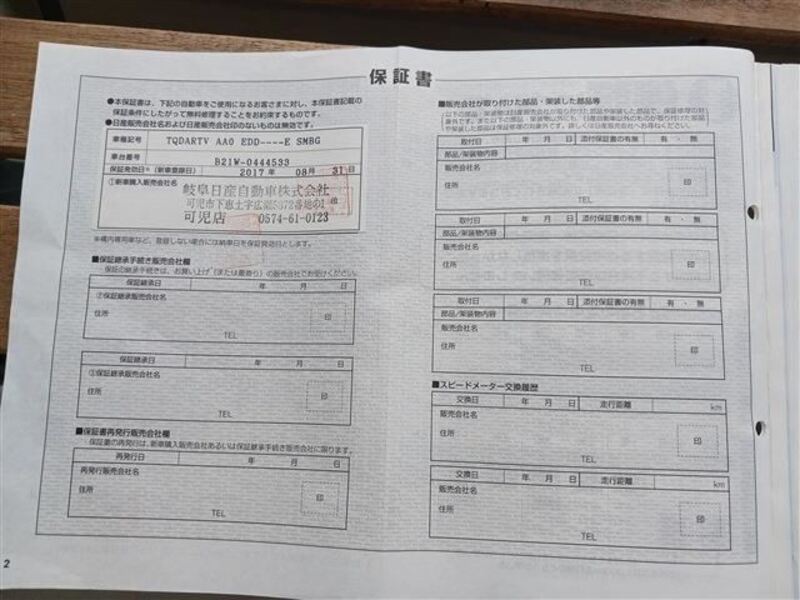 保証書
●本保証書は、下記の自動車をご使用になるお客さまに対し、本保証書記載の
保証条件にしたがって無料修理することをお約束するものです。
●日産販売会社名および日産販売会社印のないものは無効です。
車種記号 TQDARTV AA0 EDD----E SMBG
車台番号 B21W-0444533
保証発効日*(新車登録日) 2017 年 08 月 31 日
①新車購入販売会社名 岐阜日産自動車株式会社
可児市下恵土字広瀬5372番地の1 印
可児店 0574-61-0123
※構内専用車など、登録しない場合には納車日を保証発効日とします。
■保証継承手続き販売会社欄
保証の継承手続きは、お買い上げ(または最寄り)の販売会社でお受けください。
保証継承日 年 月 日
②保証継承販売会社名
住所 印
TEL
保証継承日 年 月 日
③保証継承販売会社名
住所 印
TEL
■保証書再発行販売会社欄
保証書の再発行は、新車購入販売会社あるいは保証継承手続き販売会社に限ります。
再発行日 年 月 日
再発行販売会社名
住所 印
TEL
2
■販売会社が取り付けた部品・架装した部品等
取付日 年 月 日 添付保証書の有無 有・無
部品/架装物内容
販売会社名
住所 印
TEL
取付日 年 月 日 添付保証書の有無 有・無
部品/架装物内容
販売会社名
住所 印
TEL
取付日 年 月 日 添付保証書の有無 有・無
部品/架装物内容
販売会社名
住所 印
TEL
■スピードメーター交換履歴
交換日 年 月 日 走行距離 km
販売会社名
住所 印
TEL
交換日 年 月 日 走行距離 km
販売会社名
住所 印
TEL